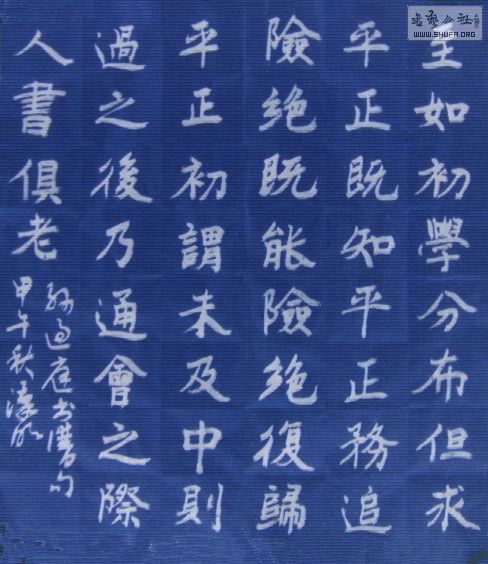 至如初學分布但求
平正既知平正務追
險絕既能險絕復歸
平正初謂未及中則
過之後乃通會之際
人書俱老
孫過庭書譜句
甲午秋
書藝公社
WWW.SHUFA.ORG